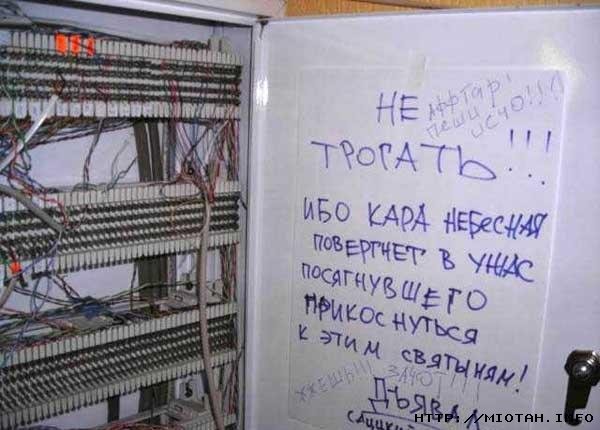 НЕ
аффтар!
пеши
исчо!!!
ТРОГАТЬ!!!
ИБО КАРА НЕБЕСНАЯ
ПОВЕРГНЕТ В УЖАС
ПОСЯГНУВШЕГО
ПРИКОСНУТЬСЯ
К ЭТИМ СВЯТЫНЯМ!
ЖЖЕШЬ!!! ЗАЧОТ!!!
ДЬЯВАЛ
HTTP://MIOTAH.INFO